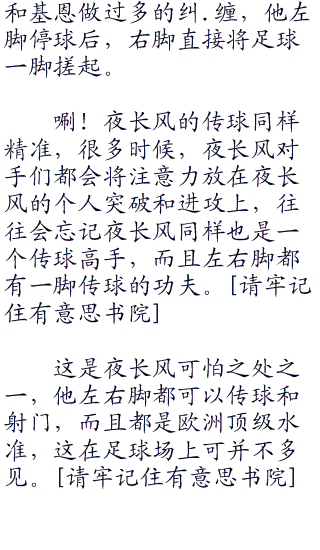 和基恩做过多的纠.缠，他左
脚停球后，右脚直接将足球
一脚搓起。
唰！夜长风的传球同样
精准，很多时候，夜长风对
手们都会将注意力放在夜长
风的个人突破和进攻上，往
往会忘记夜长风同样也是一
个传球高手，而且左右脚都
有一脚传球的功夫。[请牢记
住有意思书院]
这是夜长风可怕之处之
一，他左右脚都可以传球和
射门，而且都是欧洲顶级水
准，这在足球场上可并不多
见。[请牢记住有意思书院]